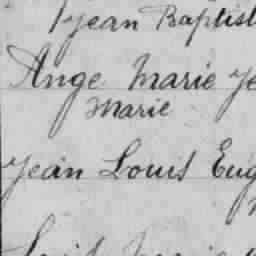 Jean Baptist
Ange Marie Je
Marie
Jean Louis Eug